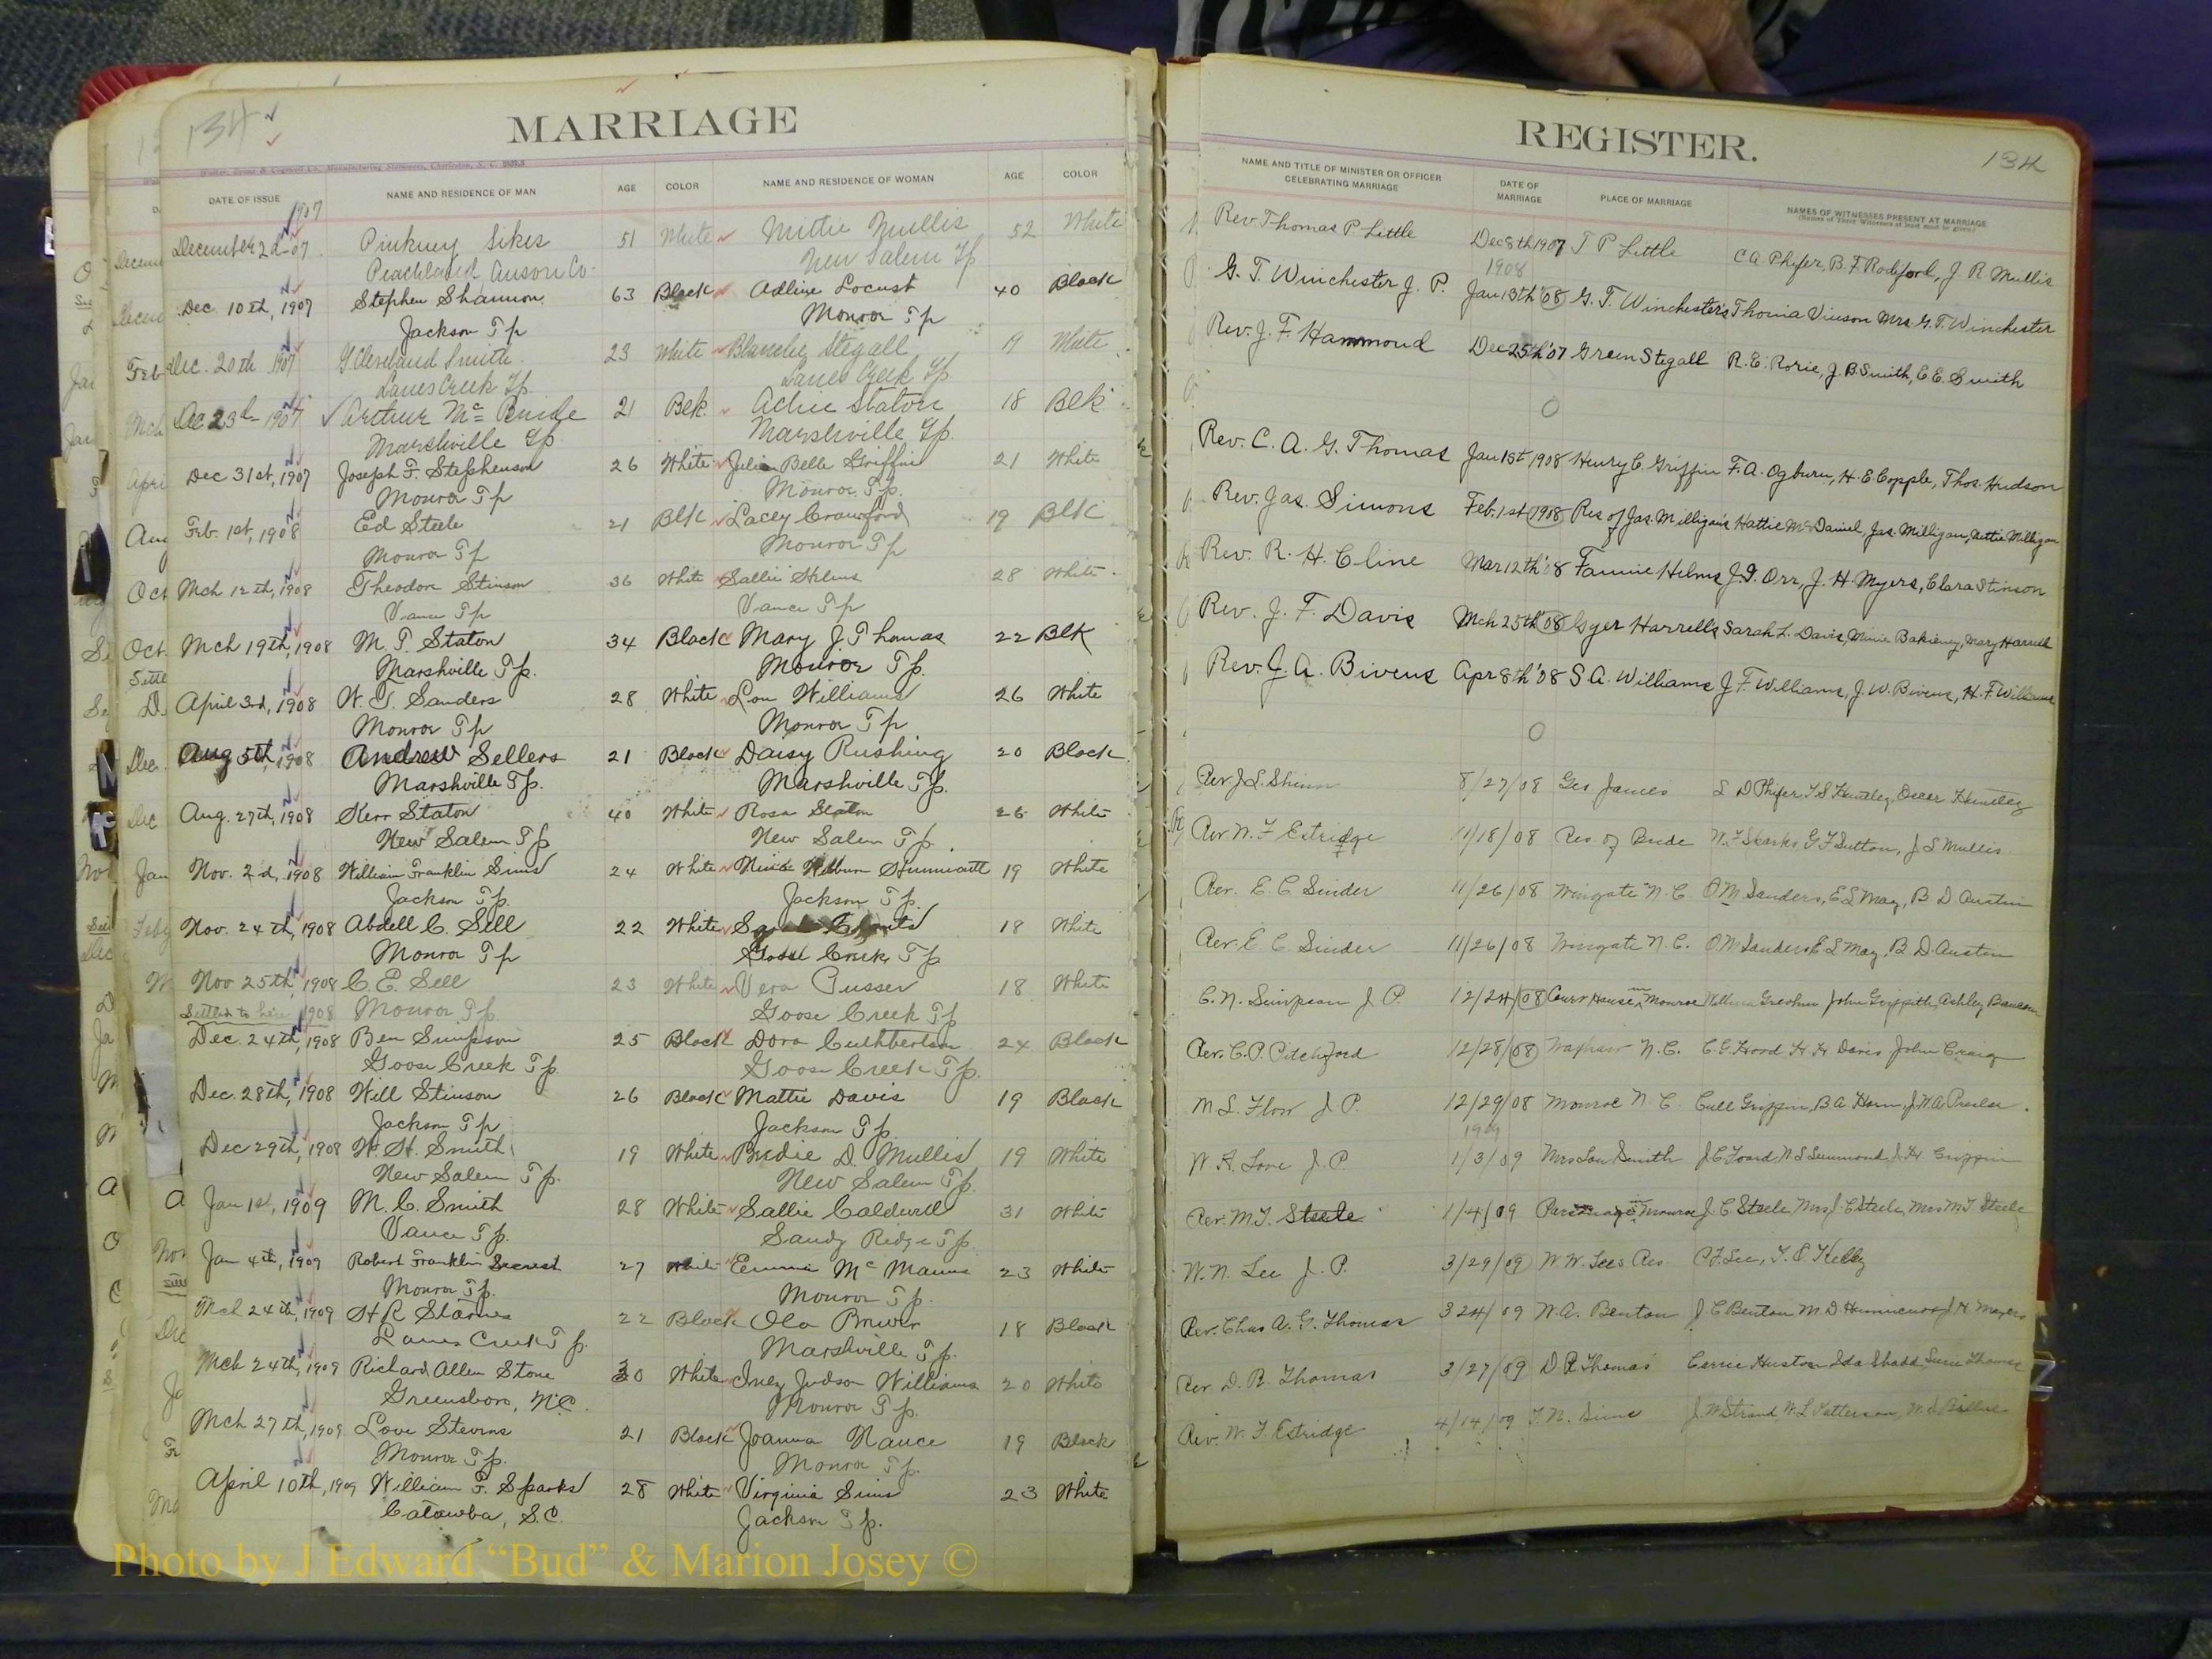 134
MARRIAGE
DATE OF ISSUE NAME AND RESIDENCE OF MAN AGE COLOR NAME AND RESIDENCE OF WOMAN AGE COLOR
1907
December 2d-07 Pinkney Sikes 51 White Mittie Mullis 52 White
Peachland Anson Co. New Salem Tp
Dec. 10th, 1907 Stephen Shannon 63 Black Adline Locust 40 Black
Jackson Tp Monroe Tp
Dec. 20th 1907 G Cleveland Smith 23 White Blanche Stegall 19 White
Lanes Creek Tp. Lanes Creek Tp
Dec 23d-1907 Arthur Mc Bride 21 Blk. Achie Staton 18 Blk
Marshville Tp. Marshville Tp.
Dec 31st, 1907 Joseph F. Stephenson 26 White Belle Griffin 21 White
Monroe Tp Monroe Tp.
Feb. 1st, 1908 Ed Steele 21 Blk Lacey Crawford 19 Blk
Monroe Tp Monroe Tp
Mch 12th, 1908 Theodore Stinson 36 White Sallie Helms 28 White
Vance Tp Vance Tp
Mch 19th, 1908 M. T. Staton 34 Black Mary J. Thomas 22 Blk
Marshville Tp. Monroe Tp.
April 3rd, 1908 Sanders 28 White Lou Williams 26 White
Monroe Tp Monroe Tp
Aug 5th, 1908 Andrew Sellers 21 Black Daisy Rushing 20 Black
Marshville Tp. Marshville Tp.
Aug. 27th, 1908 Kerr Staton 40 White Rosa Staton 26 White
New Salem Tp New Salem Tp.
Nov. 2d, 1908 William Franklin Sims 24 White 19 White
Jackson Tp. Jackson Tp.
Nov. 24th, 1908 Abdell C. Sell 22 White 18 White
Monroe Tp Goose Creek Tp
Nov 25th, 1908 C. E. Sell 23 White Vera Pusser 18 White
Settled to here 1908 Monroe Tp. Goose Creek Tp
Dec. 24th, 1908 Ben Simpson 25 Black Dora Cuthbertson 24 Black
Goose Creek Tp. Goose Creek Tp.
Dec. 28th, 1908 Will Stinson 26 Black Mattie Davis 19 Black
Jackson Tp Jackson Tp.
Dec 29th, 1908 W. H. Smith 19 White Birdie D. Mullis 19 White
New Salem Tp. New Salem Tp.
Jan 1st, 1909 M. C. Smith 28 White Sallie Caldwell 31 White
Vance Tp. Sandy Ridge Tp.
Jan 4th, 1909 Robert Franklin Secrest 27 White Emma Mc Manus 23 White
Monroe Tp. Monroe Tp.
Mch 24th, 1909 H R Starnes 22 Black Ola Brewer 18 Black
Lanes Creek Tp. Marshville Tp.
Mch 24th, 1909 Richard Allen Stone 30 White Inez Judson Williams 20 White
Greensboro, N.C. Monroe Tp.
Mch 27th, 1909 Love Stevens 21 Black Joanna Nance 19 Black
Monroe Tp. Monroe Tp.
April 10th, 1909 William F. Sparks 28 White Virginia Sims 23 White
Catawba, S.C. Jackson Tp.
REGISTER.
134
NAME AND TITLE OF MINISTER OR OFFICER CELEBRATING MARRIAGE DATE OF MARRIAGE PLACE OF MARRIAGE NAMES OF WITNESSES PRESENT AT MARRIAGE
(Names of Three Witnesses at least must be given)
Rev. Thomas P Little Dec 8th 1907 T P Little C A Phifer, B. F. Rodeford, J. R Mullis
1908
G. T. Winchester J. P. Jan 13th '08 G. T. Winchester's Thoma Vinson Mrs G. T. Winchester
Rev. J. F. Hammond Dec 25th '07 Green Stegall R. E. Rorie, J. B. Smith, E. E. Smith
O
Rev. C. A. G. Thomas Jan 1st 1908 Henry C. Griffin F. A. Ogburn, H. E. Copple, Thos. Hudson
Rev. Jas. Simons Feb. 1st 1908 Res of Jas. Milligan's Hattie McDaniel, Jas. Milligan, Nettie Milligan
Rev. R. H. Cline Mar 12th '08 Fannie Helms J. G. Orr, J. H. Myers, Clara Stinson
Rev. J. F. Davis Mch 25th '08 Gyer Harrells Sarah L. Davis, Mary Harrell
Rev. J. A. Bivens Apr 8th '08 S. A. Williams J. F. Williams, J. W. Bivens, H. F. Williams
O
Rev J. L. Shinn 8/27/08 Geo James L D Phifer, T S Huntley, Oscar Huntley
Rev N. F Estridge 11/18/08 Res. of Bride N. F Sparks G F Sutton, J. S Mullis
Rev. E. C. Snider 11/26/08 Wingate N. C O M Sanders, E L May, B. D. Austin
Rev. E. C. Snider 11/26/08 Wingate N. C. O. M Sanders E L May, B. D. Austin
C. N. Simpson J. P. 12/24/08 Court House in Monroe John Griffith, Ashley Baucom
Rev. C. P. Pitchford 12/28/08 Waxhaw N. C. C. G. Hood H. H Davis John Craig
M. L. Flow J. P. 12/29/08 Monroe N C Cull Griffin, B. A. Horn, J. W. A. Presler
1909
W. H. Love J. P. 1/3/09 Mrs Lou Smith J. C. Foard J. H. Griffin
Rev. M. T. Steele 1/4/09 Parsonage in Monroe J. C Steele, Mrs J. C Steele, Mrs M T Steele
W. N. Lee J. P. 3/29/09 W. W. Lees Res C F Lee, Kelly
Rev. Chas A. G. Thomas 3 24/09 W. A. Benton J. C Benton M. D. J. H. Meyers
Rev. D. R. Thomas 3/27/09 D R Thomas Carrie Huston Ida Shadd Susie Thomas
Rev. W. F Estridge 4/14/09 T. N. Sims W. L Patterson
Photo by J Edward “Bud” & Marion Josey ©